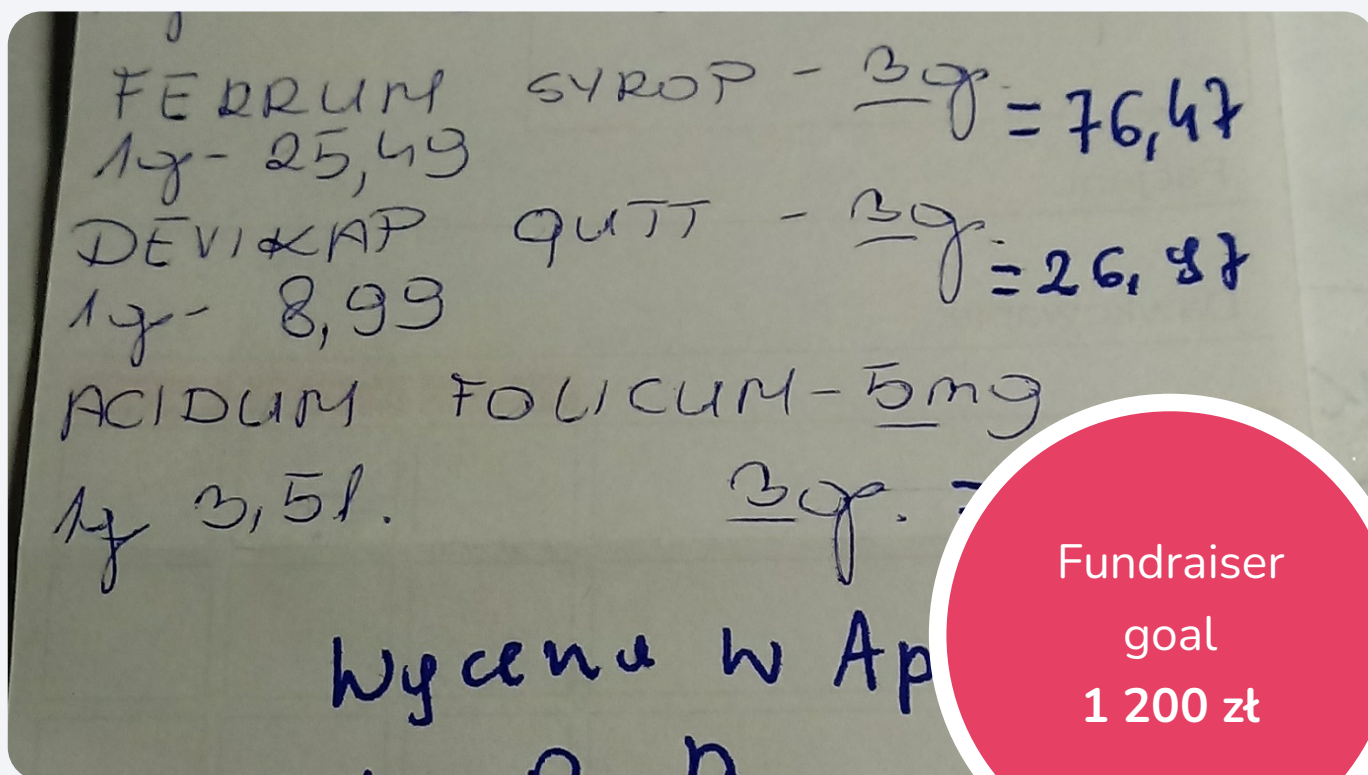 FERRUM SYROP - 3g = 76,47
1g - 25,49
DEVIKAP GUTT - 3g. = 26,97
1g - 8,99
ACIDUM FOLICUM - 5mg
1g 3,51.
3g. =
Wycena w Ap
Fundraiser
goal
1 200 zł